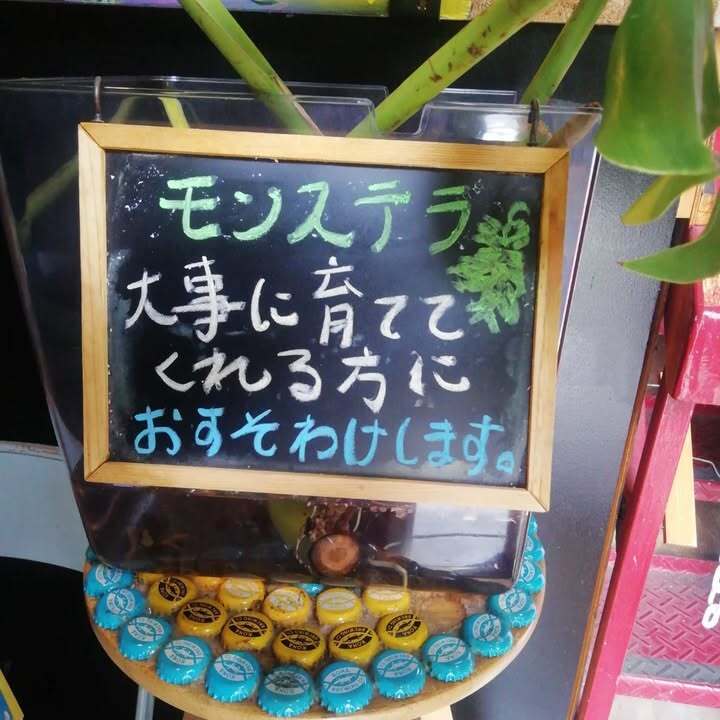 モンステラ
大事に育てて
くれる方に
おすそわけします。